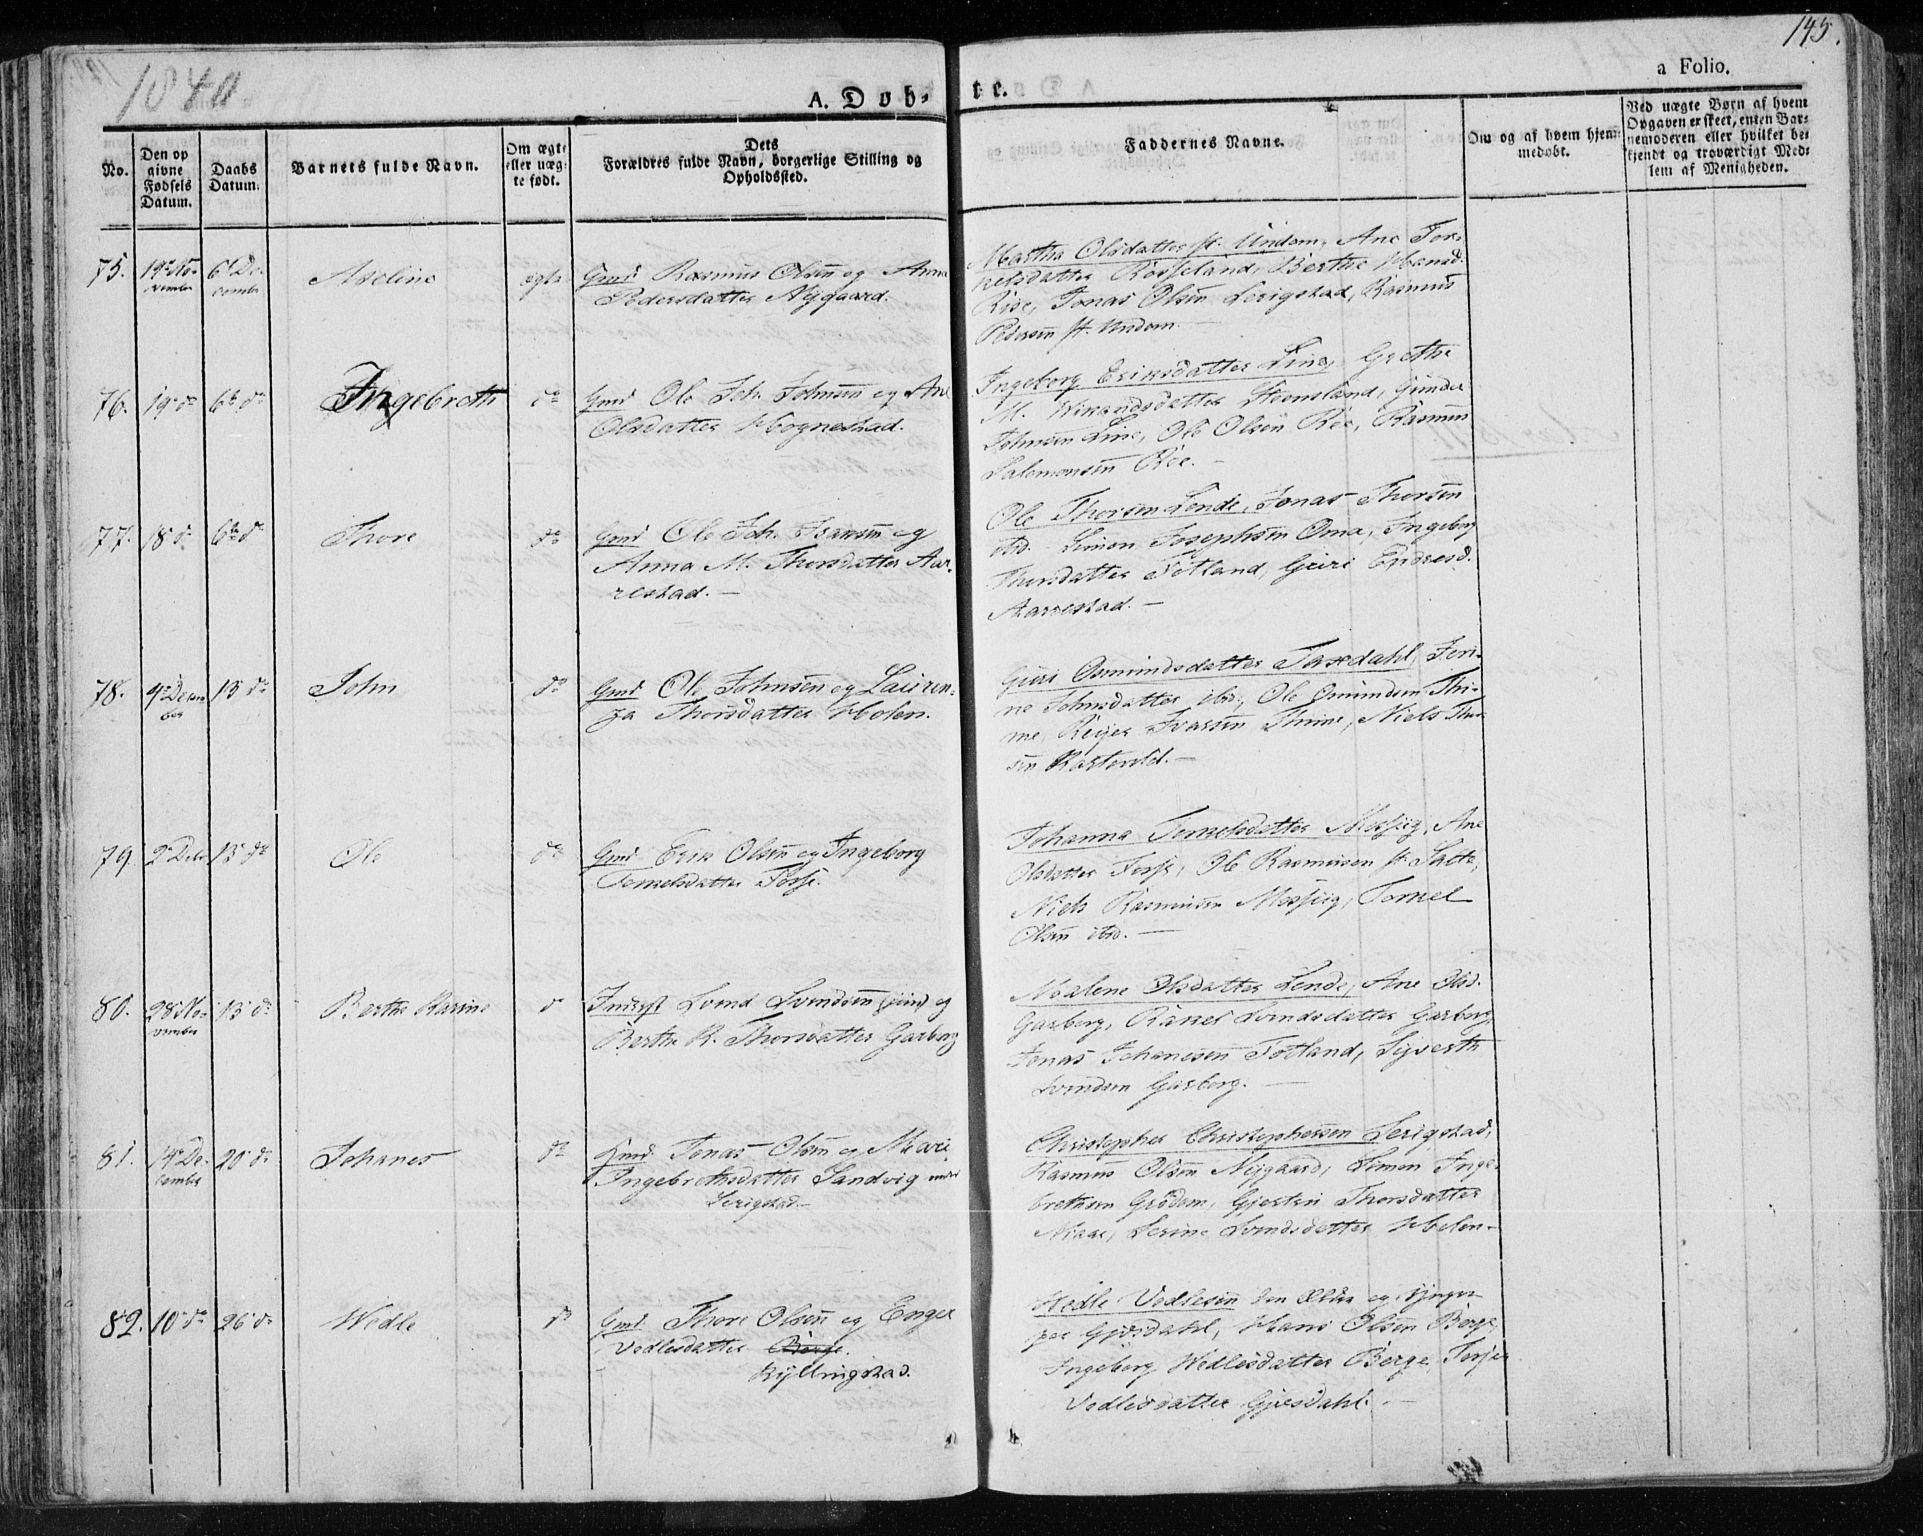 1840
145.
A. Døb-
te.
a Folio.
No.
Den op
givne
Fødsels
Datum.
Daabs
Datum.
Barnets fulde Navn.
Om ægte
eller uæg-
te født.
Dets
Forældres fulde Navn, borgerlige Stilling og
Opholdssted.
Faddernes Navne.
Om og af hvem hjem-
medøbt.
Ved uægte Børn af hvem
Opgaven er skeet, enten Bar-
nemoderen eller hvilket be-
kjendt og troværdigt Med-
lem af Menigheden.
75.
19de No-
vember
6te De-
cember
Aseline
ægte
Gmd Rasmus Olsen og Anna
Pedersdatter Nygaard.
Martha Olsdatter st. Undem, Ane Tor-
kelsdatter Rosseland, Berthe Hansd.
Rise, Jonas Olsen Serigstad, Rasmus
Pedersen st. Undem.
76.
19de do
6te do
Ingebreth
do
Gmd Ole Joh. Johnsen og Ane
Olsdatter Hognestad.
Ingeborg Eriksdatter Line, Grethe
M. Wikandsdatter Steensland, Gunder
Johnsen Line, Ole Olsen Røe, Rasmus
Salomonsen Røe. -
77.
18 do
6te do
Thore
do
Gmd Ole Joh. Isansen og
Anna M. Thorsdatter Aar-
restad. -
Ole Thorsen Lende, Jonas Thorsen
ibd. Simon Josephsen Oma, Ingeborg
Thorsdatter Fotland, Guri Endresd.
Aarrestad. -
78.
4de Decem
ber
13 do
John
do
Gmd Ole Johnsen og Lauren-
za Thorsdatter Holen.
Guri Osmundsdatter Taxdahl, Jen-
ne Johnsdatter ibd., Ole Osmundsen Thi-
me, Reijer Ivarsen Thime, Niels Thor
sen
79.
2de Decbr
13 do
Ole
do
Gmd Erik Olsen og Ingeborg
Tornelsdatter Fosse.
Johanna Tornelsdatter Mossiig, Ane
Olsdatter Fosse, Ole Rasmussen st. Salte,
Niels Rasmussen Mossiig, Tornel
Olsen ibd. -
80.
28de No-
vember
13 do
Berthe Karine
do
Inderst Svend Svendsen (jun) og
Berthe K. Thorsdatter Garborg
Malene Olsdatter Lende, Ane Olsd.
Garborg, Rakel Svendsdatter Garborg,
Jonas Johanesen Fotland, Sijverth
Svendsen Garborg. -
81.
14de De-
cember
20 do
Johanes
do
Gmd Jonas Olsen og Mari
Ingebrethsdatter Sandvig under
Serigstad. -
Christopher Christophersen Serigstad,
Rasmus Olsen Nygaard, Simon Inge-
brethsen Grødem, Gjertru Thorsdatter
Njaae, Serine Svendsdatter Holen. -
82.
10de do
26 do
Wedle
do
Gmd Thore Olsen og Enger
Vedlesdatter Berge.
Kyllingstad.
Wedle Vedlesen den Ældre og Yngre
paa Gjesdahl, Hans Olsen Berge,
Ingeborg Wedlesdatter Berge, Terjer
Vedlesdatter Gjesdahl. -